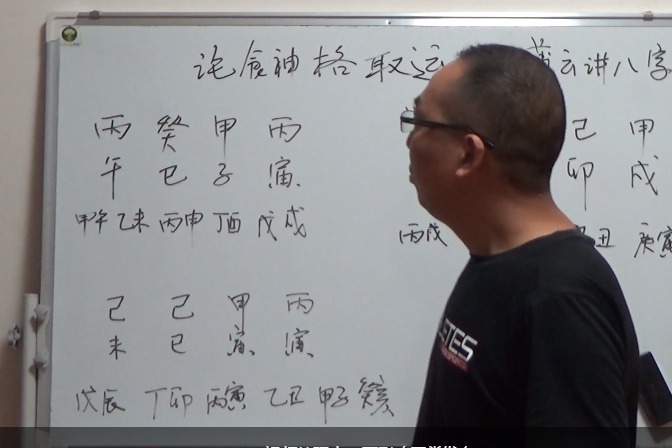 论食神格取运 薄云讲八字
丙 癸 甲 丙
午 巳 子 寅
甲午 乙未 丙申 丁酉 戊戌
己 甲
卯 戌
丙戌 丑 庚寅
己 己 甲 丙
未 巳 寅 寅
戊辰 丁卯 丙寅 乙丑 甲子 癸亥
ETES